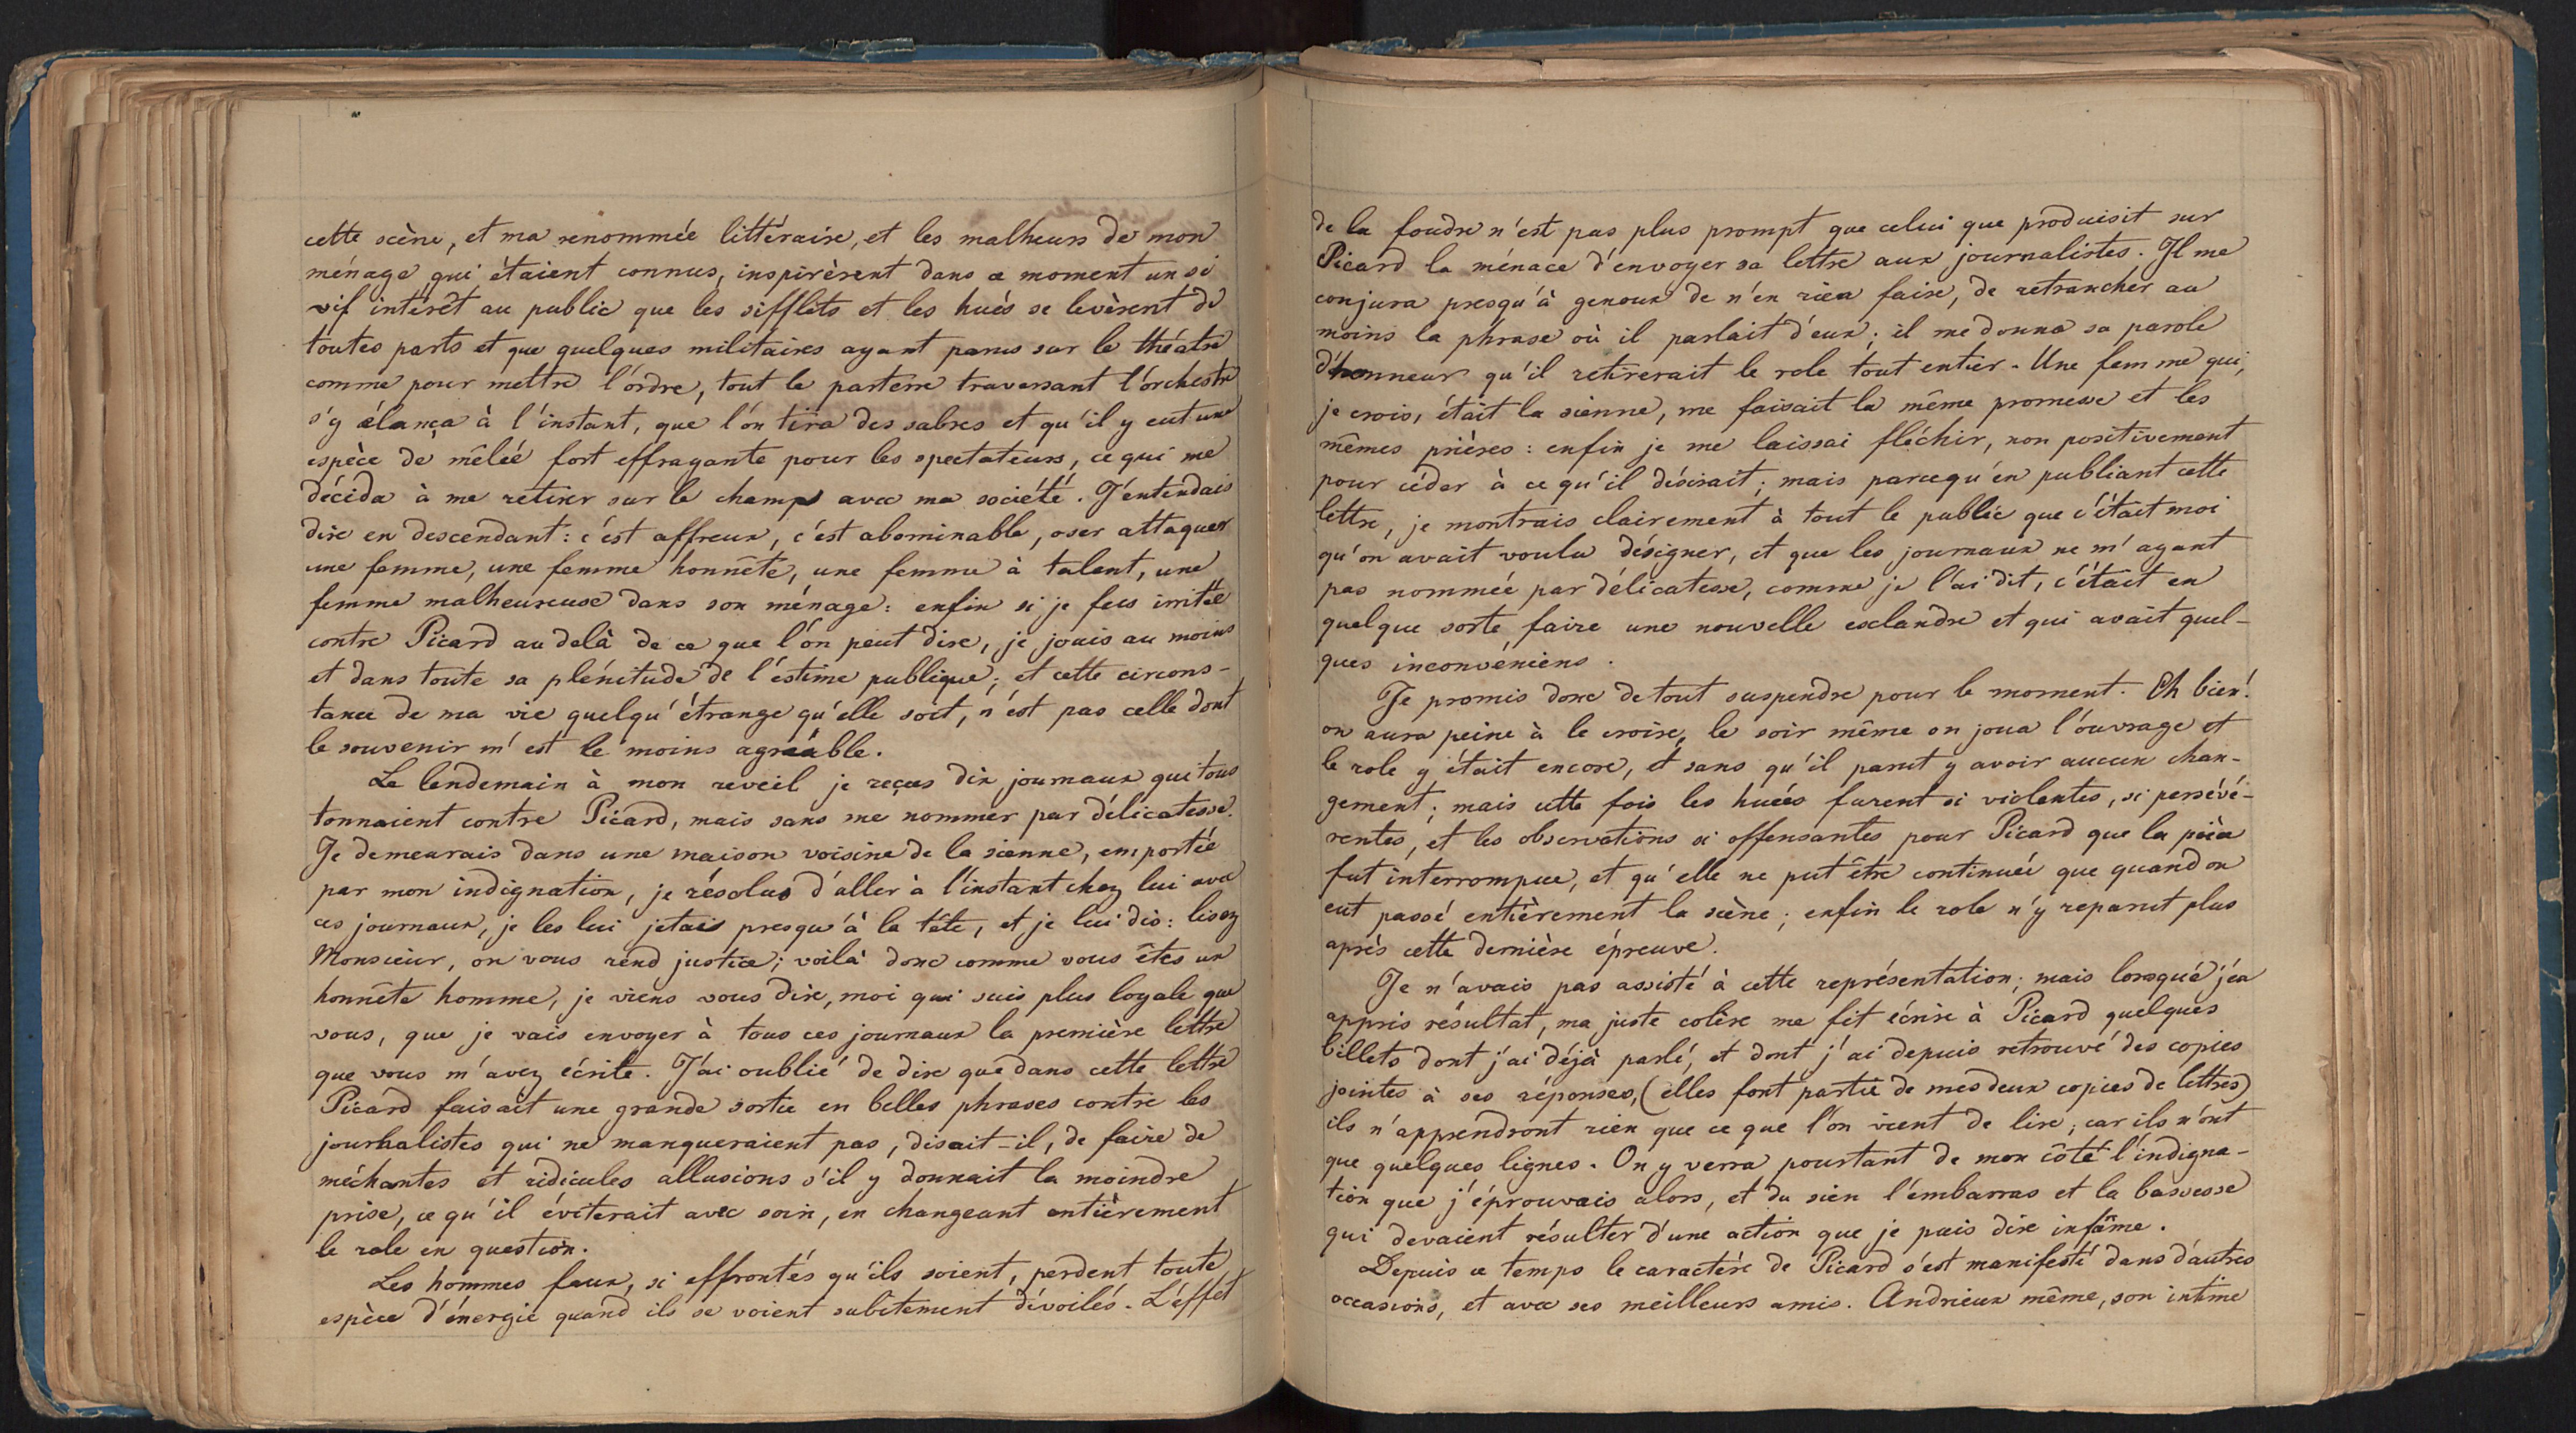 cette scène, et ma renommée littéraire, et les malheurs de mon
ménage qui étaient connus, inspirèrent dans ce moment un si
vif intérêt au public que les sifflets et les hués se levèrent de
toutes parts et que quelques militaires ayant parus sur le théatre
comme pour mettre l'ordre, tout le parterre traversant l'orchestre
s'y élança à l'instant, que l'on tira des sabres et qu'il y eut une
espèce de mêlée fort effrayante pour les spectateurs, ce qui me
décida à me retirer sur le champ avec ma société. J'entendais
dire en descendant: c'est affreux, c'est abominable, oser attaquer
une femme, une femme honnête, une femme à talent, une
femme malheureuse dans son ménage: enfin si je fus irritée
contre Picard au delà de ce que l'on peut dire, je jouis au moins
et dans toute sa plénitude de l'estime publique; et cette circons-
tance de ma vie quelqu'étrange qu'elle soit, n'est pas celle dont
le souvenir m'est le moins agréable.
Le lendemain à mon reveil je reçus dix journaux qui tous
tonnaient contre Picard, mais sans me nommer par délicatesse.
Je demeurais dans une maison voisine de la sienne, emportée
par mon indignation, je résolus d'aller à l'instant chez lui avec
ces journaux, je les lui jetais presqu'à la tête, et je lui dis: lisez
Monsieur, on vous rend justice; voilà donc comme vous êtes un
honnête homme, je viens vous dire, moi qui suis plus loyale que
vous, que je vais envoyer à tous ces journaux la première lettre
que vous m'avez écrite. J'ai oublié de dire que dans cette lettre
Picard faisait une grande sortie en belles phrases contre les
journalistes qui ne manqueraient pas, disait-il, de faire de
méchantes et ridicules allusions s'il y donnait la moindre
prise, ce qu'il éviterait avec soin, en changeant entièrement
le role en question.
Les hommes faux, si effrontés qu'ils soient, perdent toute
espèce d'énergie quand ils se voient subitement dévoilés. L'effet
de la foudre n'est pas plus prompt que celui que produisit sur
Picard la ménace d'envoyer sa lettre aux journalistes. Il me
conjura presqu'à genoux de n'en rien faire, de retrancher au
moins la phrase où il parlait d'eux; il me donna sa parole
d'honneur qu'il retirerait le role tout entier. Une femme qui,
je crois, était la sienne, me faisait la même promesse et les
mêmes prières: enfin je me laissai fléchir, non positivement
pour céder à ce qu'il désirait; mais parcequ'en publiant cette
lettre, je montrais clairement à tout le public que c'était moi
qu'on avait voulu désigner, et que les journaux ne m'ayant
pas nommée par délicatesse, comme je l'ai dit, c'était en
quelque sorte faire une nouvelle esclandre et qui avait quel-
ques inconvéniens.
Je promis donc de tout suspendre pour le moment. Eh bien!
on aura peine à le croire, le soir même on joua l'ouvrage et
le role y était encore, et sans qu'il parut y avoir aucun chan-
gement; mais cette fois les huées furent si violentes, si persévé-
rentes, et les observations si offensantes pour Picard que la pièce
fut interrompue, et qu'elle ne put être continuée que quand on
eut passé entièrement la scène; enfin le role n'y reparut plus
après cette dernière épreuve.
Je n'avais pas assisté à cette représentation; mais lorsque j'en
appris résultat, ma juste colère me fit écrire à Picard quelques
billets dont j'ai déjà parlé, et dont j'ai depuis retrouvé des copies
jointes à ses réponses, (elles font partie de mes deux copies de lettres)
ils n'apprendront rien que ce que l'on vient de lire; car ils n'ont
que quelques lignes. On y verra pourtant de mon côté l'indigna-
tion que j'éprouvais alors, et du sien l'embarras et la bassesse
qui devaient résulter d'une action que je puis dire infâme.
Depuis ce temps le caractère de Picard s'est manifesté dans d'autres
occasions, et avec ses meilleurs amis. Andrieux même, son intime